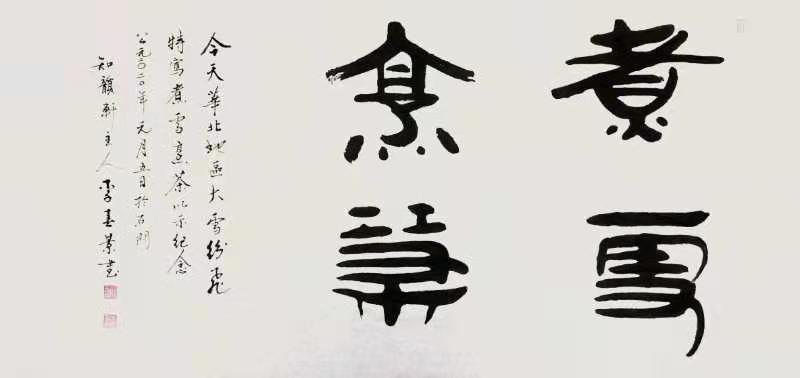 煮雪
烹茶
今天華北地區大雪紛飛
特寫煮雪烹茶以示紀念
公元二〇二〇年元月五日於石門
知馥軒主人李春景書